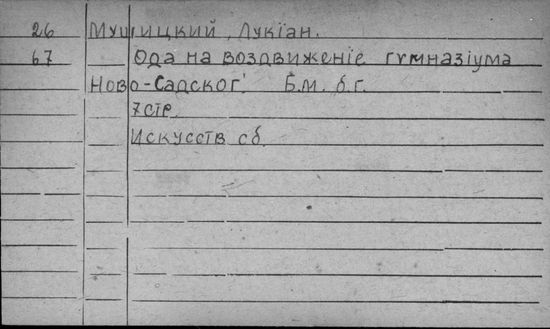 26 Мушицкий, Лукіан.
67 Ода на воздвиженіе гѵмназіума
Ново-Садског' Б.м. б.г.
7стр.
Искусств сб.